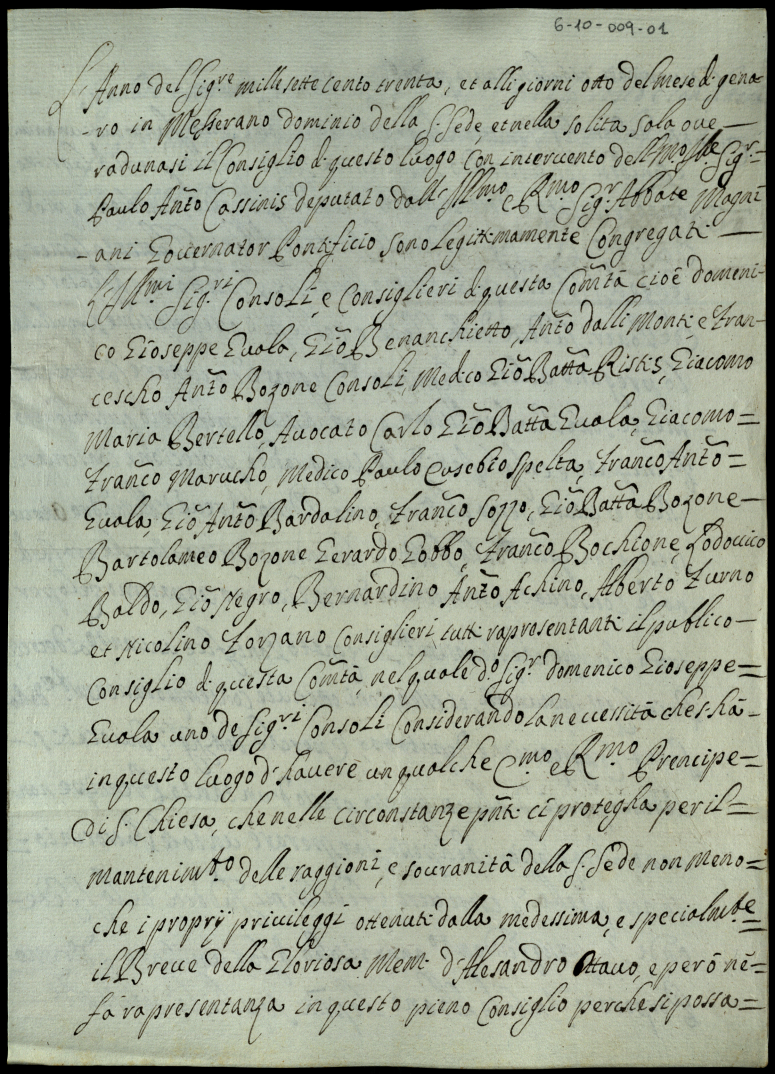 6-10-009-01
L'Anno del Sig.re mille sette cento trenta, et alli giorni otto del mese di gena-
-ro in Messerano dominio della S. Sede, et nella solita sala ove —
radunasi il Consiglio di questo luogo con intervento dell Sig.r =
Paulo Anto Cassinis deputato dall Illmo e Rmo Sigr Abbate Magni
-ani Governator Pontificio sono legitimamente Congregati —
Gl'Illmi Sig.ri Consoli, e Consiglieri di questa Comtà cioè domeni-
co Gioseppe Guala, Gio Benanchietto, Anto dalli Monti e Fran-
cescho Anto Bozone Consoli, Medico Gio Batta Ristis, Giacomo
Maria Bertello, Avocato Carlo Gio Batta Guala, Giacomo =
Franco Marucho, Medico Paulo Eusebio Spelta, Franco Anto =
Guala, Gio Anto Bardalino, Franco Sozzo, Gio Batta Bozone —
Bartolameo Bozone Gerardo Gobbo, Franco Bochione, Lodovico
Baldo, Gio Negro, Bernardino Anto Achino, Alberto Furno
et Nicolino Forzano Consiglieri, tutti rapresentanti il publico —
Consiglio di questa Comtà, nel quale do Sigr domenico Gioseppe =
Guala uno de Sig.ri Consoli Considerando la necessità che s'hà -
in questo luogo d'havere un qualche Emo e Rmo Prencipe =
Di S. Chiesa, che nelle circonstanze pnti ci protegha per il =
mantenimto delle raggioni, e sovranità della S. Sede non meno =
che i proprij privileggi ottenuti dalla medessima, e specialmte =
il Breve della Gloriosa Mem. d'Alesandro Ottavo, e però nè =
fà rapresentanza in questo pieno Consiglio perche si possa =